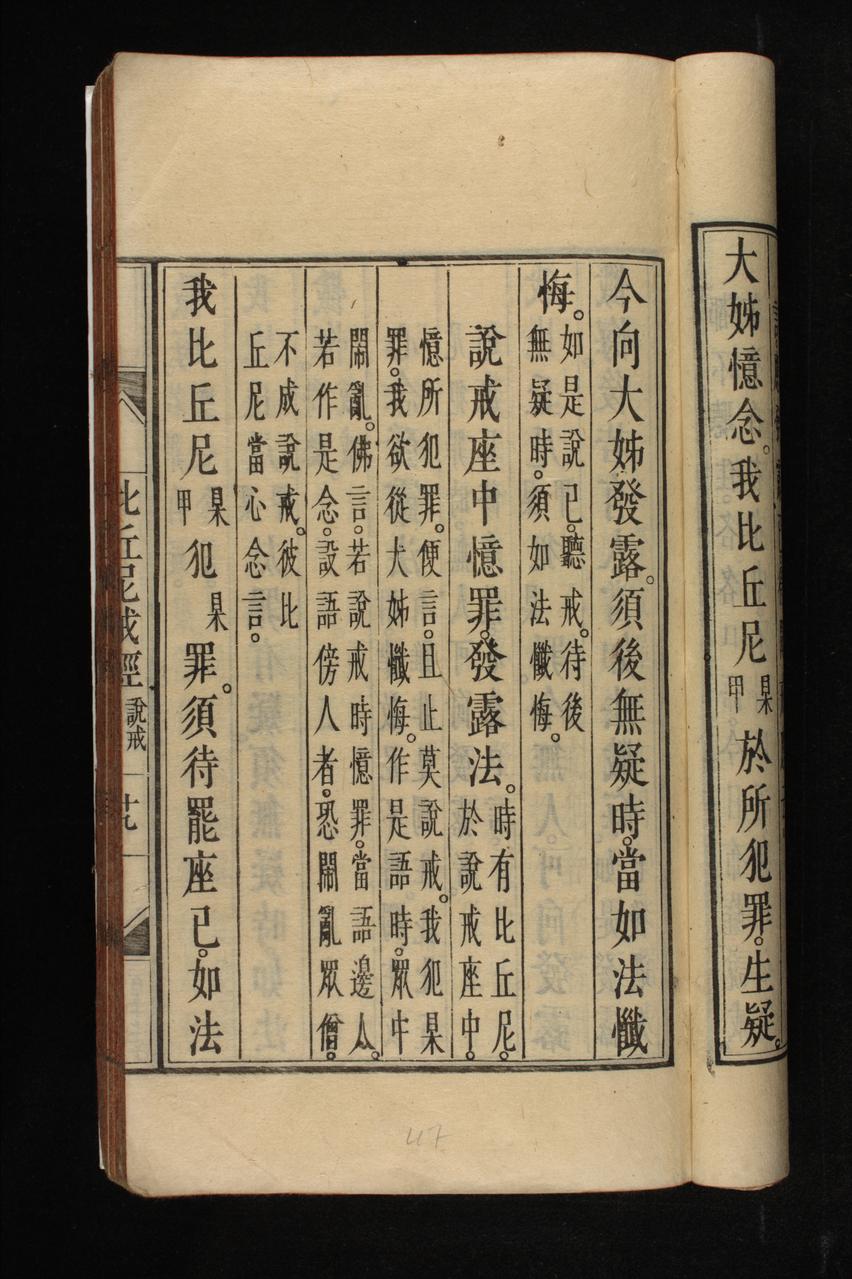 大姊憶念。我比丘尼某甲於所犯罪。生疑。
今向大姊發露。須後無疑時。當如法懺
悔。如是說已。聽戒。待後
無疑時。須如法懺悔。
說戒座中憶罪。發露法。時有比丘尼。
於說戒座中。
憶所犯罪。便言。且止莫說戒。我犯某
罪。我欲從大姊懺悔。作是語時。眾中
鬧亂。佛言。若說戒時憶罪。當語邊人。
若作是念。設語傍人者。恐鬧亂眾僧。
不成說戒。彼比
丘尼當心念言。
我比丘尼某甲犯某罪。須待罷座已。如法
比丘尼戒經 說戒 廿
47